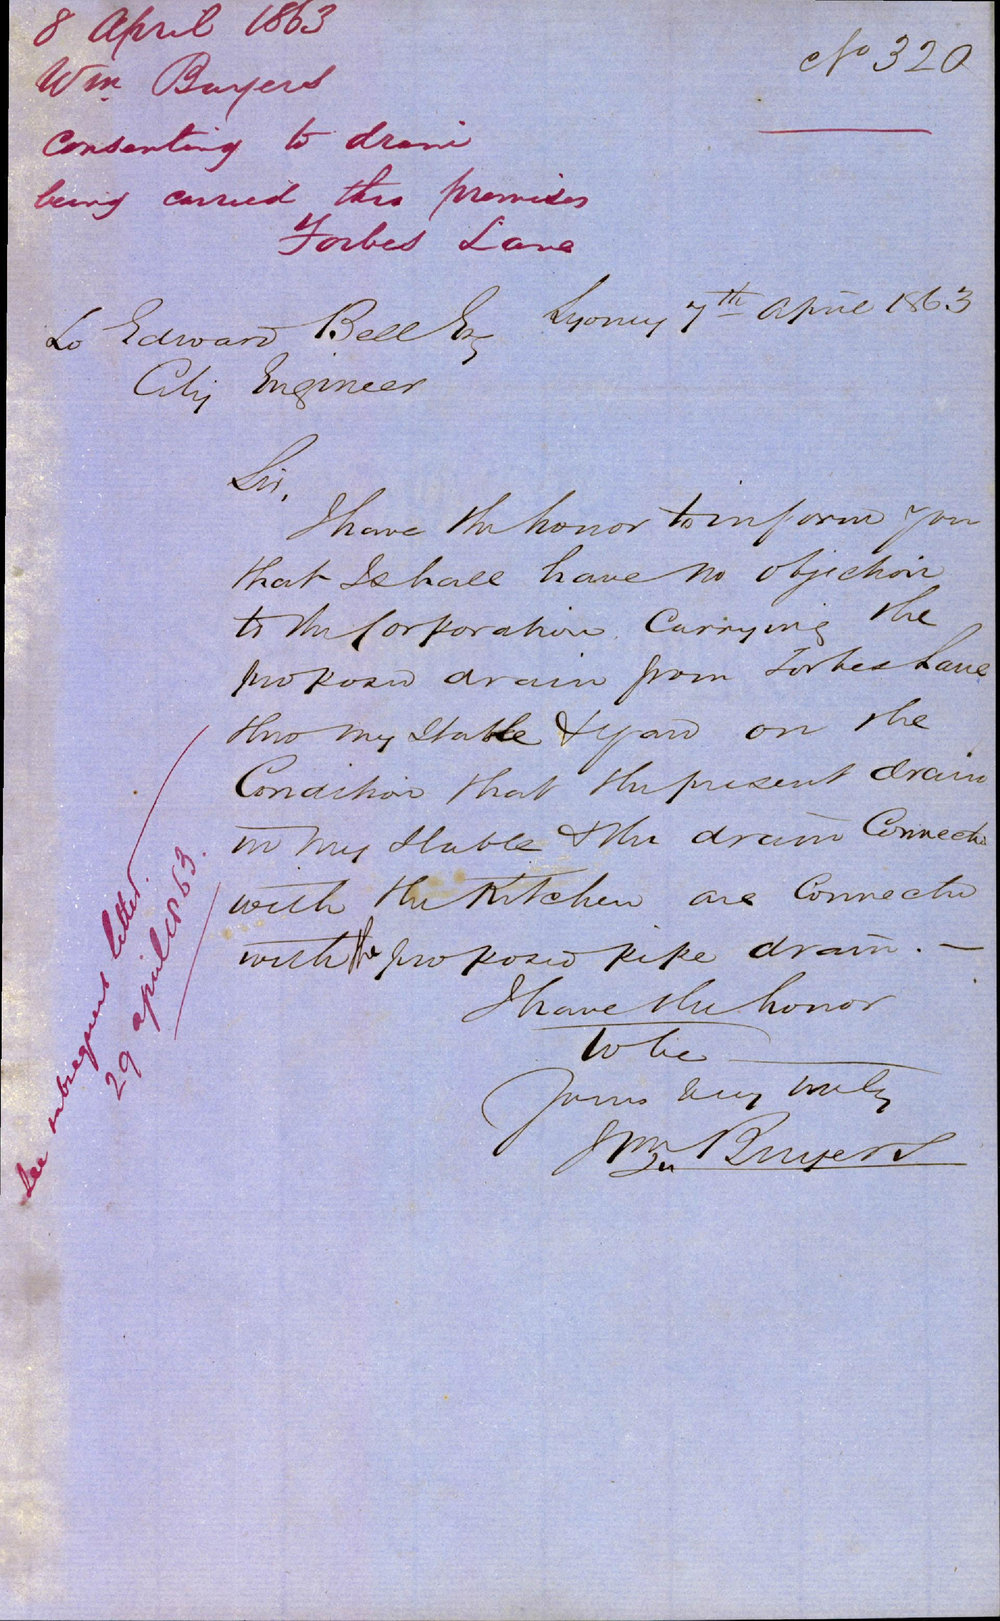 8 April 1863
Wm Buyers
consenting to drain
being carried thro premises
Forbes Lane
No 320
Sydney 7th April 1863
To Edward Bell Esq
City Engineer
Sir,
I have the honor to inform you
that I shall have no objection
to the Corporation Carrying the
proposed drain from Forbes Lane
thro my Stable & yard on the
Condition that the present drain
in my Stable & the drain Connected
with the Kitchen are Connected
with the proposed pipe drain. —
I have the honor
to be
Yours very truly
Wm Buyers
See subsequent letter.
29 april 1863.